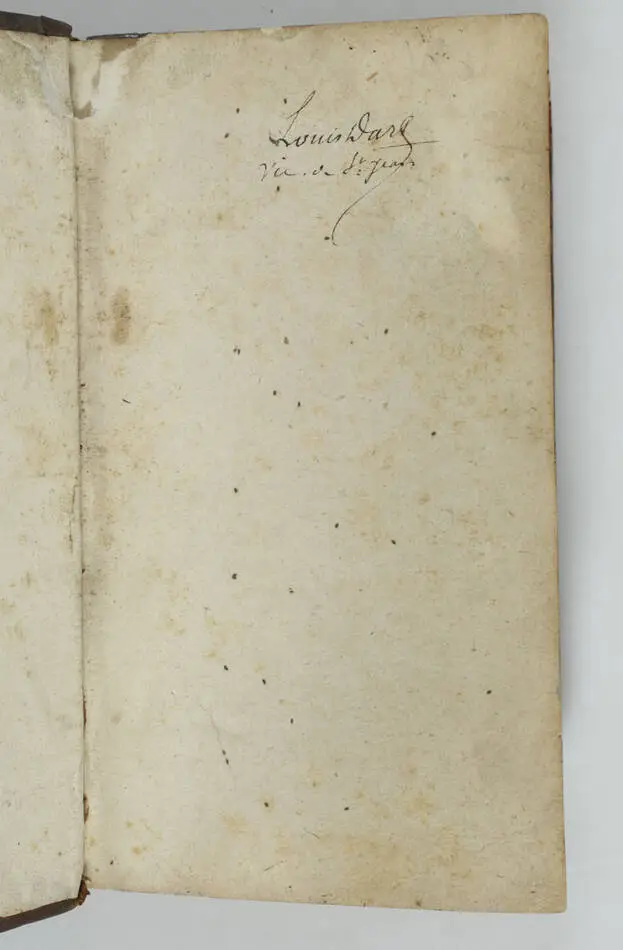 Louis Dare
Vic. de St. Jean